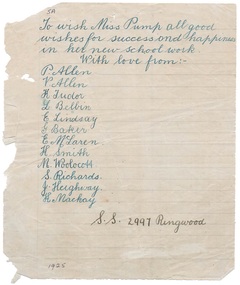 To wish Miss Pump all good
wishes for success and happiness
in her new school work.
With love from:-
P. Allen
V. Allen
H. Tudor
L. Belbin
E. Lindsay
F. Baker
E. McLaren
H. Smith
M. Woolcott
S. Richards.
J. Heighway.
H. Mackay
S.S. 2997 Ringwood
1925